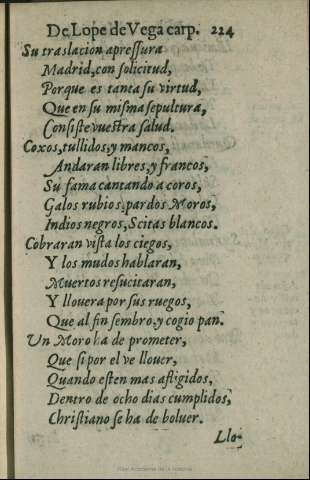 De Lope de Vega carp. 224
Su traslacion apressura
Madrid, con solicitud,
Porque es tanta su virtud,
Que en su misma sepultura,
Consiste vuestra salud.
Coxos, tullidos, y mancos,
Andaran libres, y francos,
Su fama cantando a coros,
Galos rubios, pardos Moros,
Indios negros, Scitas blancos.
Cobraran vista los ciegos,
Y los mudos hablaran,
Muertos resucitaran,
Y llouera por sus ruegos,
Que al fin sembro, y cogio pan.
Un Moro ha de prometer,
Que si por el ve llouer,
Quando esten mas afligidos,
Dentro de ocho dias cumplidos,
Christiano se ha de boluer.
Llo-
Real Academia de la Historia